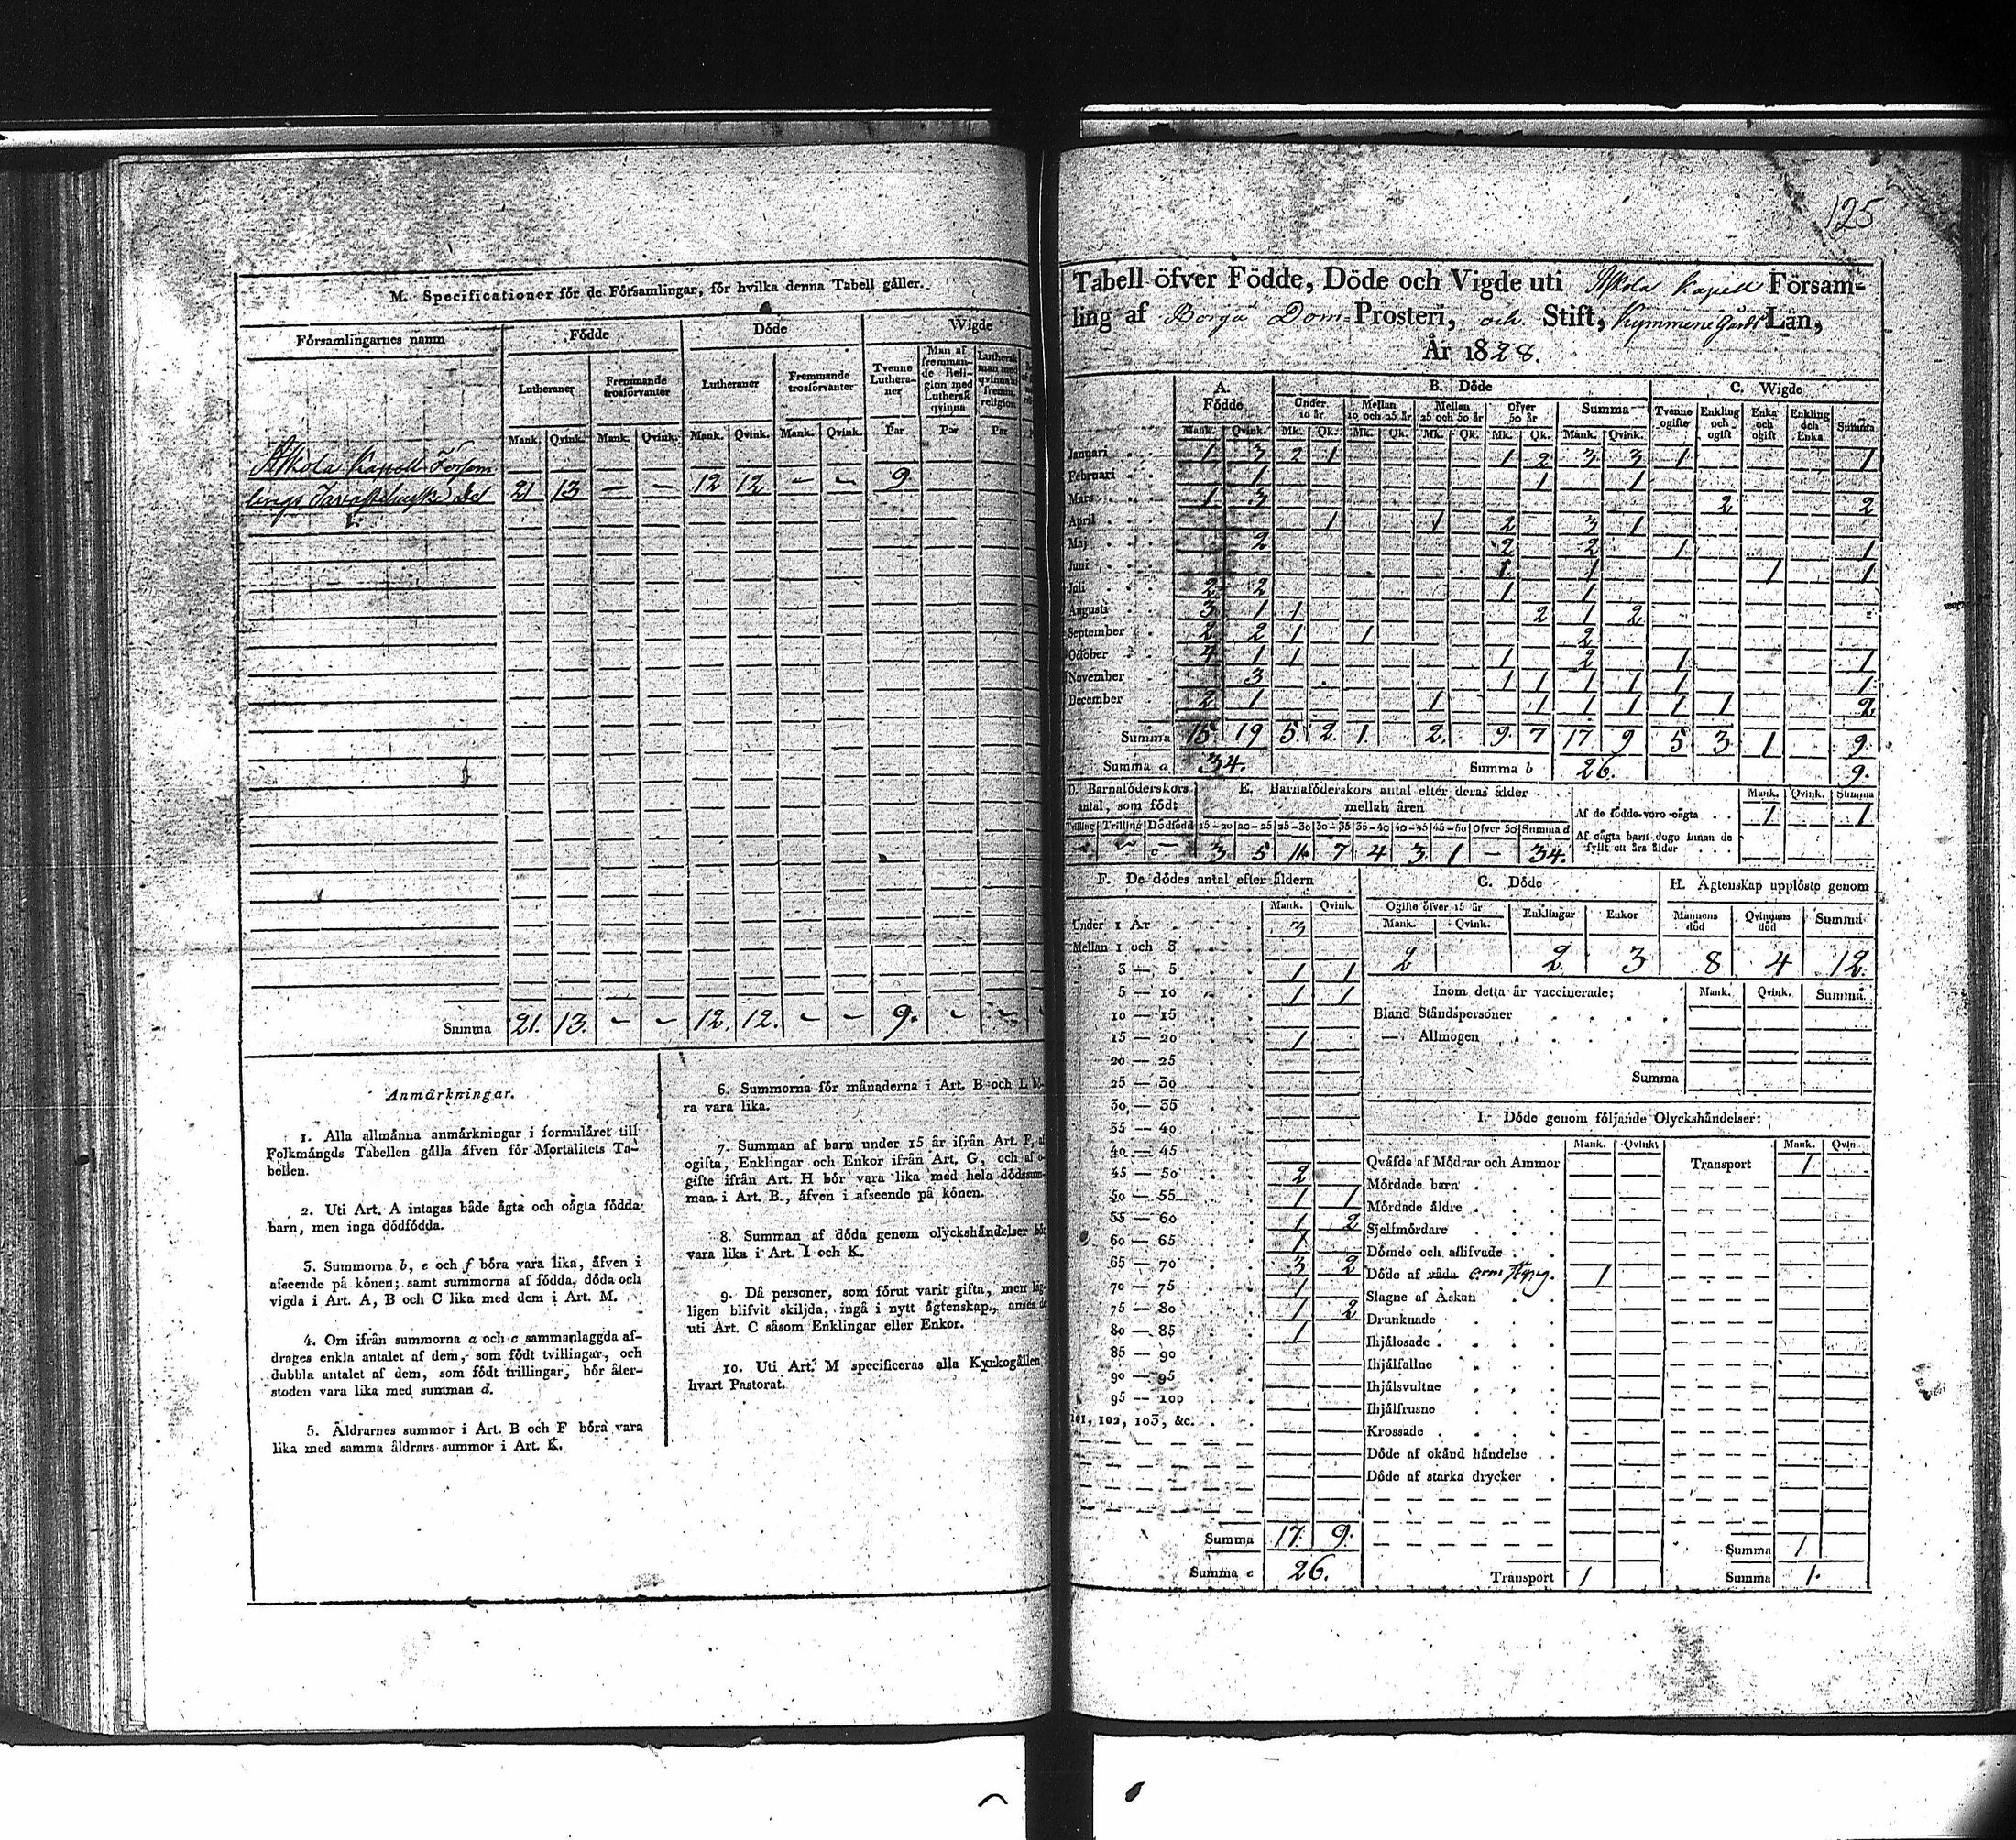 M. Specificationer för de Församlingar, för hvilka denna Tabell gäller.
Församlingarnes namn
Födde
Döde
Wigde
Lutheraner
Fremmande trosförvanter
Lutheraner
Fremmande trosförvanter
Tvenne Lutheraner
Man af fremmande Religion med Luthersk qvinna
Luthersk man med qvinna af fremm. religion
Mank. Qvink. Mank. Qvink. Mank. Qvink. Mank. Qvink. Par Par Par
Askola Kapell Försam
lings Tavastehuske del 21 13 — — 12 12 — — 9.
Summa 21. 13. - - 12. 12. - - 9. - -
Anmärkningar.
1. Alla allmänna anmärkningar i formuläret till
Folkmängds Tabellen gälla äfven för Mortalitets Ta-
bellen.
2. Uti Art. A intagas både ägta och oägta födda
barn, men inga dödfödda.
3. Summorna b, e och f böra vara lika, äfven i
afseende på könen; samt summorna af födda, döda och
vigda i Art. A, B och C lika med dem i Art. M.
4. Om ifrån summorna a och c sammanlaggda af-
drages enkla antalet af dem, som födt tvillingar, och
dubbla antalet af dem, som födt trillingar, bör åter-
stoden vara lika med summan d.
5. Åldrarnes summor i Art. B och F böra vara
lika med samma åldrars summor i Art. K.
6. Summorna för månaderna i Art. B och L bö-
ra vara lika.
7. Summan af barn under 15 år ifrån Art. F, af
ogifta, Enklingar och Enkor ifrån Art. G, och af
gifte ifrån Art. H bör vara lika med hela dödssum-
man i Art. B., äfven i afseende på könen.
8. Summan af döda genom olyckshändelser bör
vara lika i Art. I och K.
9. Då personer, som förut varit gifta, men lag-
ligen blifvit skiljda, ingå i nytt ägtenskap, anses de
uti Art. C såsom Enklingar eller Enkor.
10. Uti Art. M specificeras alla Kyrkogällen i
hvart Pastorat.
125
Tabell öfver Födde, Döde och Vigde uti Askola Kapell Försam-
ling af Borgå Dom-Prosteri, och Stift, Kymmene Gårds Län,
År 1828.
A. Födde
B. Döde
C. Wigde
Under 10 år
Mellan 10 och 25 år
Mellan 25 och 50 år
Öfver 50 år
Summa
Tvenne ogifte
Enkling och ogift
Enka och ogift
Enkling och Enka
Summa
Mank. Qvink. Mk. Qk. Mk. Qk. Mk. Qk. Mk. Qk. Mank. Qvink.
Januari 1 3 2 1 1 2 3 3 1 1
Februari 1 1 1
Mars 1 3 2 2
April 1 1 2 3 1
Maj 2 2 2 1 1
Juni 1 1 1 1
Juli 2 2 1 1
Augusti 3 1 1 2 1 2
September 2 2 1 1 2
October 4 1 1 1 2 1 1
November 3 1 1 1 1 1 1
December 2 1 1 1 1 1 1 1 2
Summa 15 19 5 2 1 2 9 7 17 9 5 3 1 9.
Summa a 34. Summa b 26. 9.
D. Barnaföderskors antal, som födt
E. Barnaföderskors antal efter deras ålder mellan åren
Mank. Qvink. Summa
Af de födde voro oägta 1 1
Af oägta barn dogo innan de fyllt ett års ålder
Tvilling Trilling Dödfödd 15–20 20–25 25–30 30–35 35–40 40–45 45–50 Öfver 50 Summa d
3 5 11 7 4 3 1 — 34.
F. De dödes antal efter åldern
Mank. Qvink.
Under 1 År 3
Mellan 1 och 3
3 — 5 1 1
5 — 10 1 1
10 — 15
15 — 20 1
20 — 25
25 — 30
30 — 35
35 — 40
40 — 45
45 — 50 2
50 — 55 1 1
55 — 60 1 2
60 — 65 1
65 — 70 3 2
70 — 75 1
75 — 80 1 2
80 — 85 1
85 — 90
90 — 95
95 — 100
101, 102, 103, &c.
Summa 17. 9.
Summa e 26.
G. Döde
Ogifte öfver 15 år
Enklingar
Enkor
Mank. Qvink.
2 2 3
H. Ägtenskap upplöste genom
Mannens död
Qvinnans död
Summa
8 4 12.
Inom detta år vaccinerade: Mank. Qvink. Summa
Bland Ståndspersoner
— Allmogen
Summa
I. Döde genom följande Olyckshändelser:
Mank. Qvink. Mank. Qvin.
Qväfde af Mödrar och Ammor Transport 1
Mördade barn
Mördade äldre
Sjelfmördare
Dömde och aflifvade
Döde af våda orm styng. 1
Slagne af Åskan
Drunknade
Ihjälosade
Ihjälfallne
Ihjälsvultne
Ihjälfrusne
Krossade
Döde af okänd händelse
Döde af starka drycker
Summa 1
Transport 1 Summa 1.